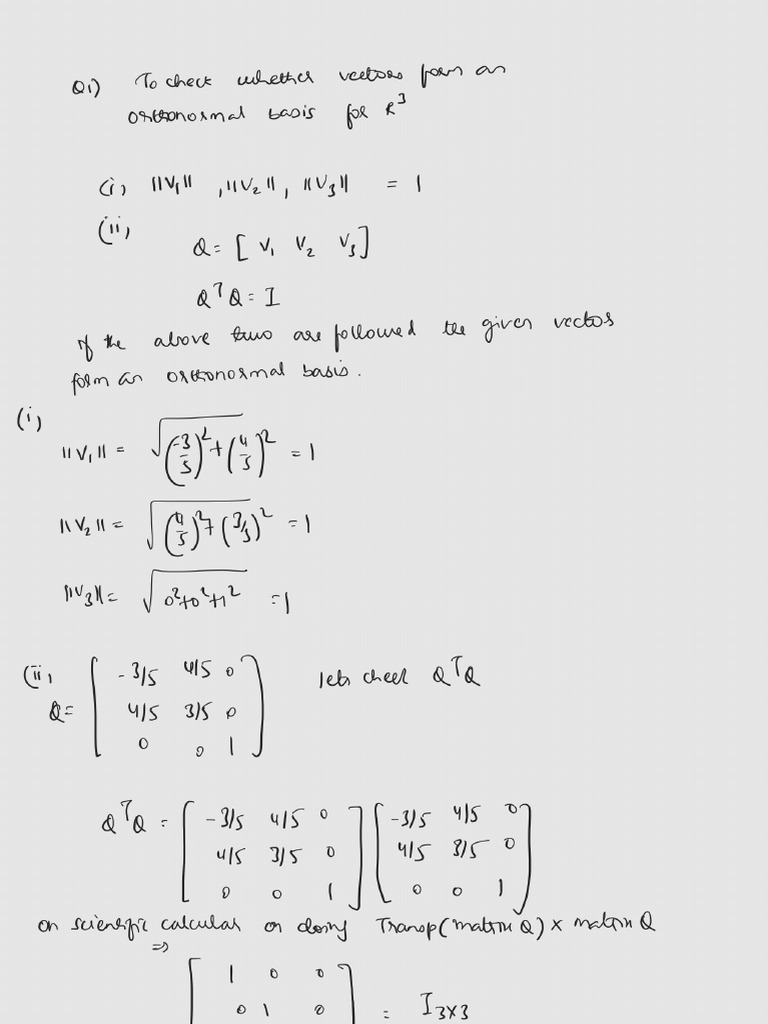 Q1) To check whether vectors form an
orthonormal basis for R^3
(i) ||V_1|| , ||V_2||, ||V_3|| = 1
(ii)
Q = [ V_1 V_2 V_3 ]
Q^T Q = I
If the above two are followed the given vectos
form an orthonormal basis.
(i)
||V_1|| = √((-3/5)^2 + (4/5)^2) = 1
||V_2|| = √((4/5)^2 + (3/5)^2) = 1
||V_3|| = √(0^2+0^2+1^2) = 1
(ii) [ -3/5 4/5 0 lets check Q^T Q
Q = 4/5 3/5 0
0 0 1 ]
Q^T Q = [ -3/5 4/5 0 ] [ -3/5 4/5 0 ]
4/5 3/5 0 4/5 3/5 0
0 0 1 0 0 1
on scientific calcular on doing Transp(matrix Q) × matrix Q
⇒
[ 1 0 0 ]
0 1 0 = I_3×3